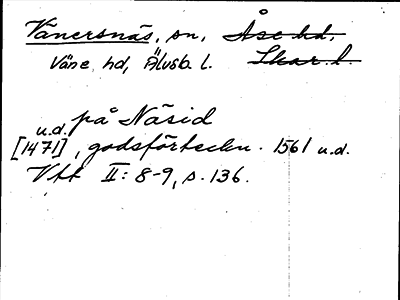 Vänersnäs, sn, Åse hd,
Väne hd, Älvsb. l. Skar. l.
på Näsid
u.d.
[1471], godsförteckn. 1561 u.d.
Vtt II: 8-9, s. 136.